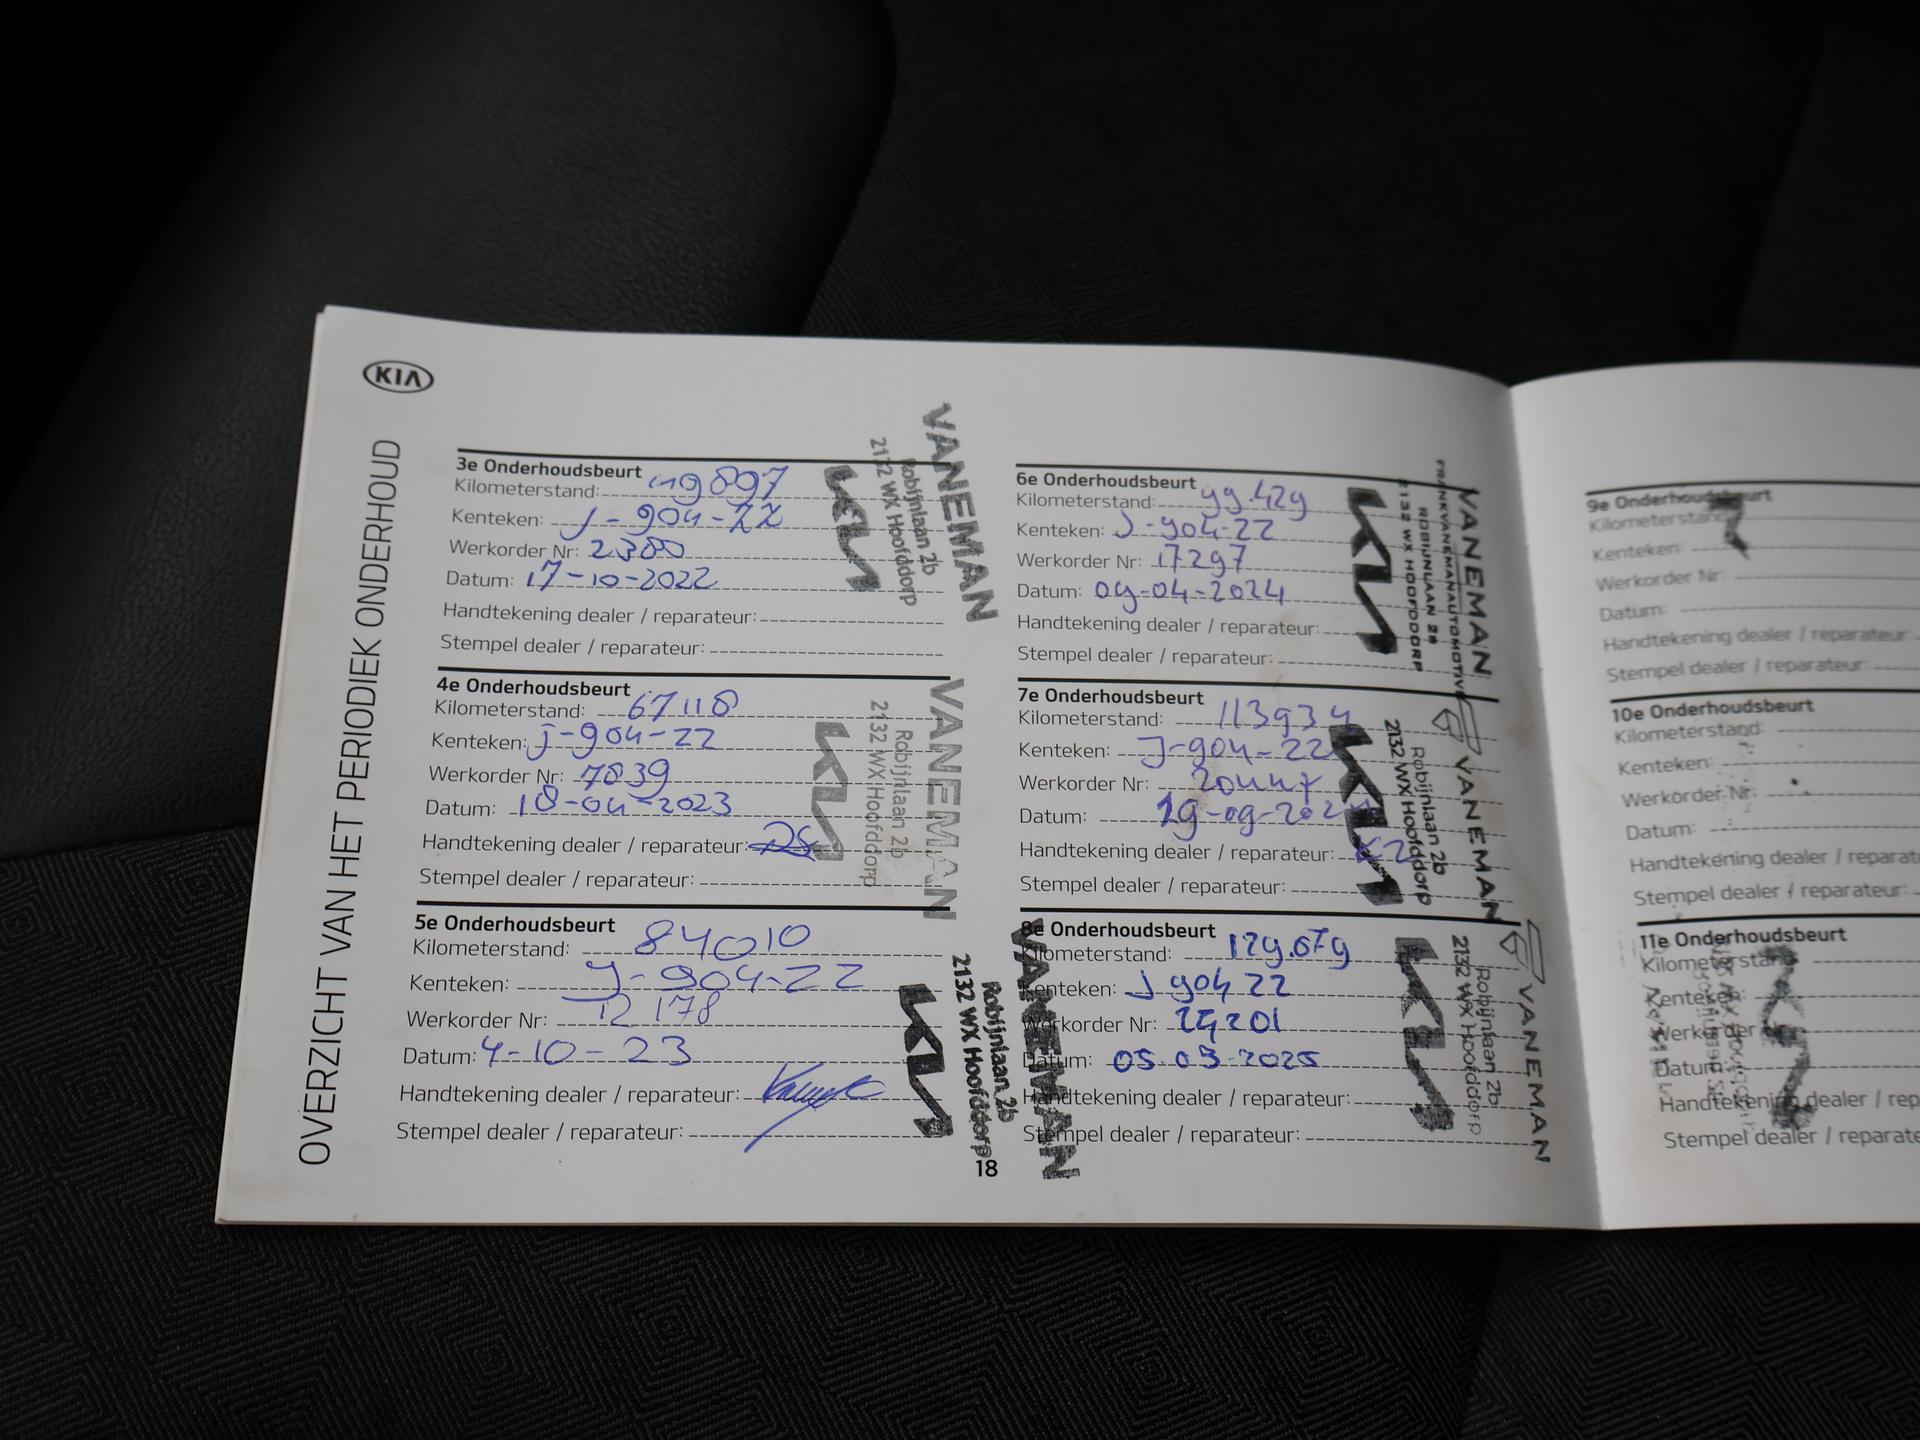 KIA
OVERZICHT VAN HET PERIODIEK ONDERHOUD
3e Onderhoudsbeurt
Kilometerstand: 49897
Kenteken: J-904-ZZ
Werkorder Nr: 2380
Datum: 17-10-2022
Handtekening dealer / reparateur:
Stempel dealer / reparateur:
KIA
2132 WX Hoofddorp
Robijnlaan 2b
VANEMAN
4e Onderhoudsbeurt
Kilometerstand: 67118
Kenteken: J-904-ZZ
Werkorder Nr: 7839
Datum: 18-04-2023
Handtekening dealer / reparateur:
Stempel dealer / reparateur:
KIA
2132 WX Hoofddorp
Robijnlaan 2b
VANEMAN
5e Onderhoudsbeurt
Kilometerstand: 84010
Kenteken: J-904-ZZ
Werkorder Nr: 12178
Datum: 4-10-23
Handtekening dealer / reparateur:
Stempel dealer / reparateur:
KIA
2132 WX Hoofddorp
Robijnlaan 2b
VANEMAN
6e Onderhoudsbeurt
Kilometerstand: 99.429
Kenteken: J-904-ZZ
Werkorder Nr: 17297
Datum: 09-04-2024
Handtekening dealer / reparateur:
Stempel dealer / reparateur:
KIA
2132 WX HOOFDDORP
ROBIJNLAAN 2B
FRANKVANEMANAUTOMOTIVE
VANEMAN
7e Onderhoudsbeurt
Kilometerstand: 113934
Kenteken: J-904-ZZ
Werkorder Nr: 20447
Datum: 19-09-202
Handtekening dealer / reparateur:
Stempel dealer / reparateur:
KIA
2132 WX Hoofddorp
Robijnlaan 2b
VANEMAN
8e Onderhoudsbeurt
Kilometerstand: 129.679
Kenteken: J 904 ZZ
Werkorder Nr:
Datum: 05-03-2025
Handtekening dealer / reparateur:
Stempel dealer / reparateur:
KIA
2132 WX Hoofddorp
Robijnlaan 2b
VANEMAN
18
9e Onderhoudsbeurt
Kilometerstand:
Kenteken:
Werkorder Nr:
Datum:
Handtekening dealer / reparateur:
Stempel dealer / reparateur:
10e Onderhoudsbeurt
Kilometerstand:
Kenteken:
Werkorder Nr:
Datum:
Handtekening dealer / reparat
Stempel dealer / reparateur:
11e Onderhoudsbeurt
Kilometerstand
Kenteken
Werkorder
Datum
Handtekening dealer / rep
Stempel dealer / reparate